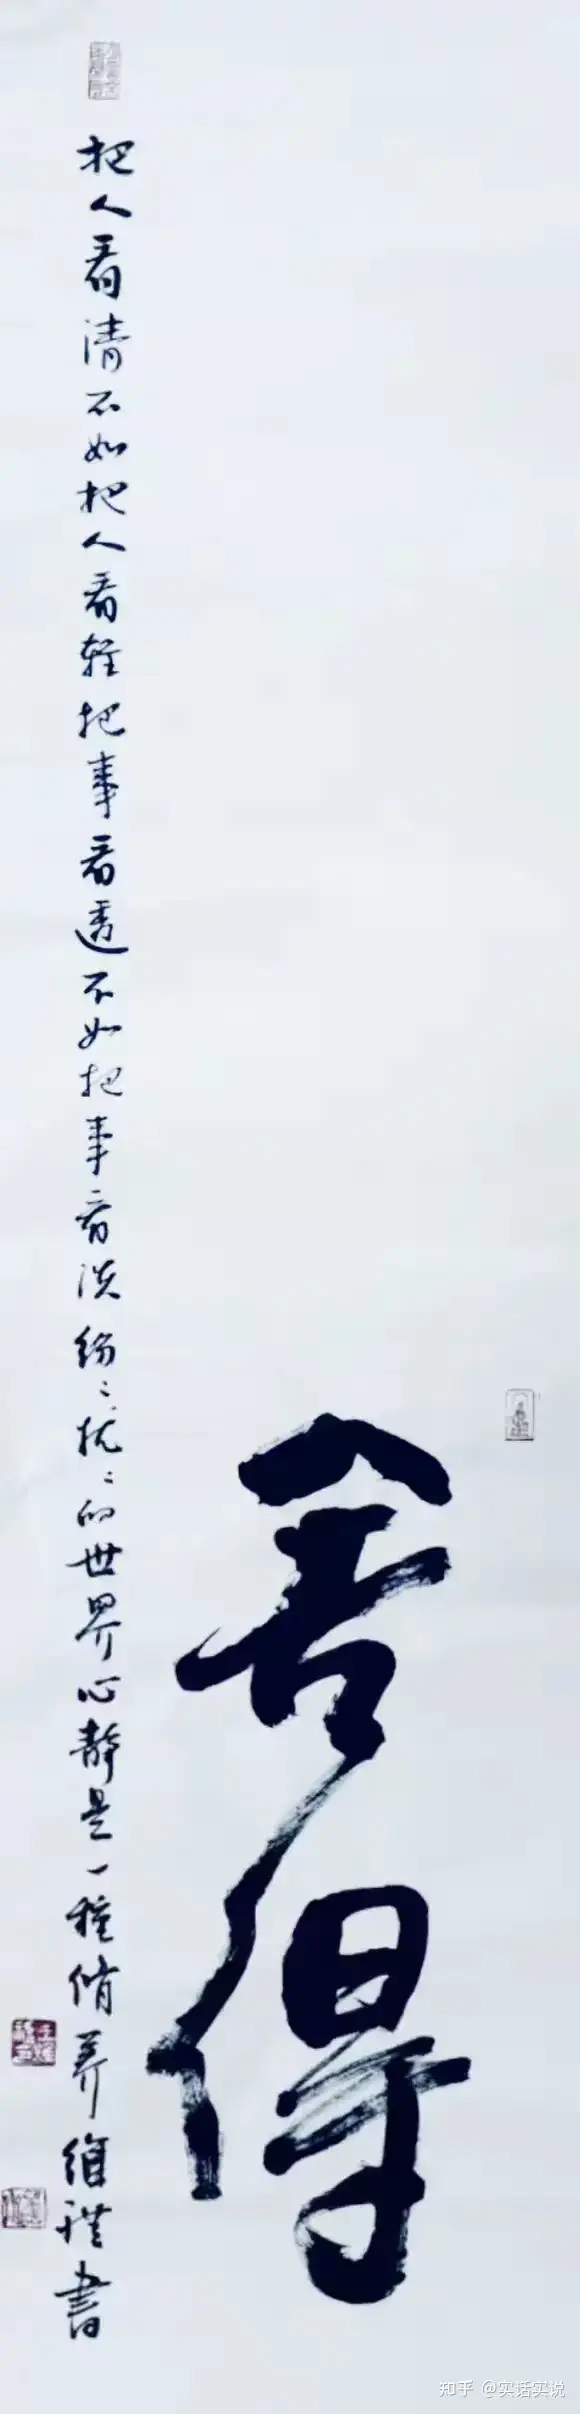 舍得
把人看清不如把人看轻把事看透不如把事看淡纷々扰々的世界心静是一種脩养维禮書
知乎 @实话实说